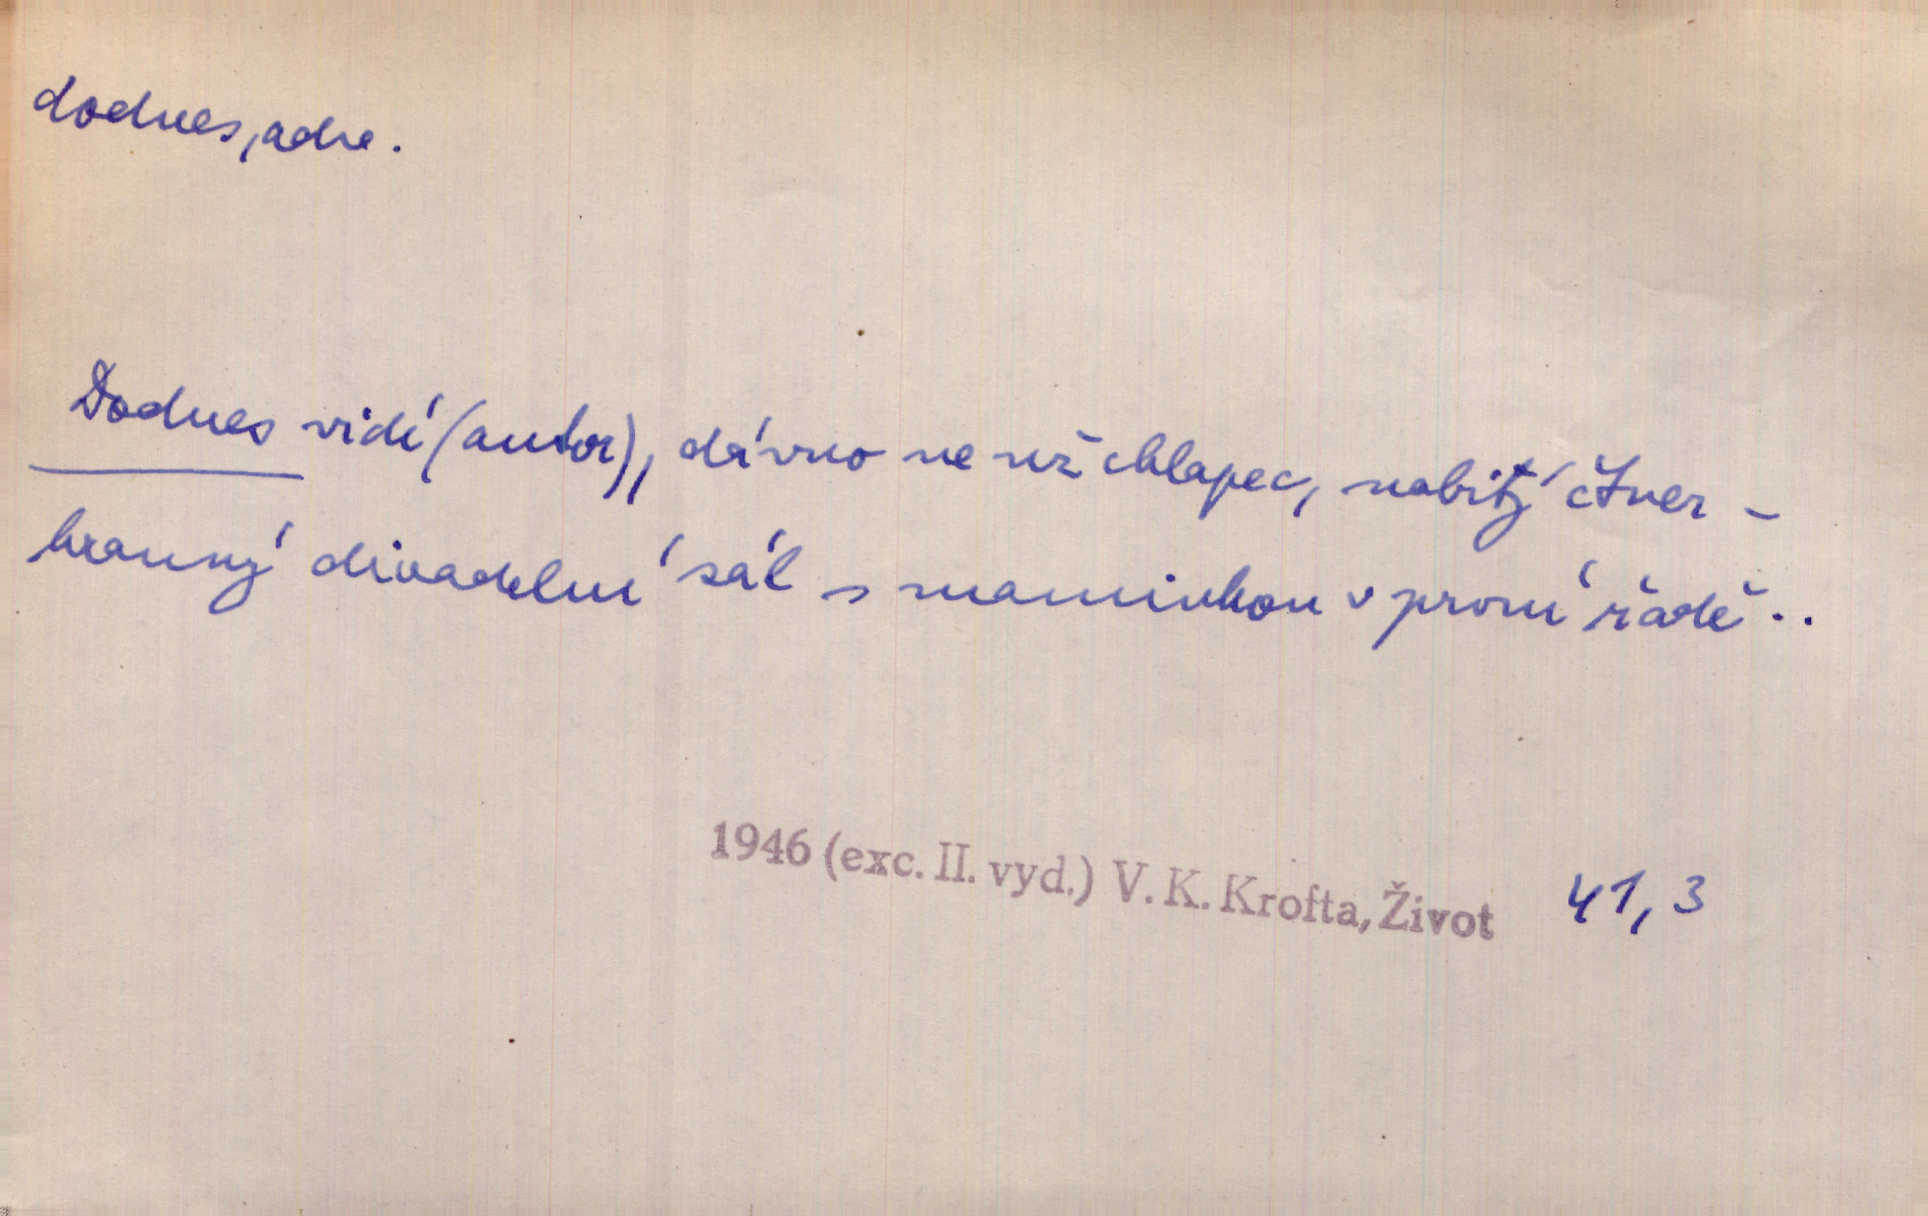 dodnes, adv.
Dodnes vidí (autor), dávno ne už chlapec, nabitý čtver-
hranný divadelní sál s maminkou v první řadě..
1946 (exc. II. vyd.) V. K. Krofta, Život 41,3